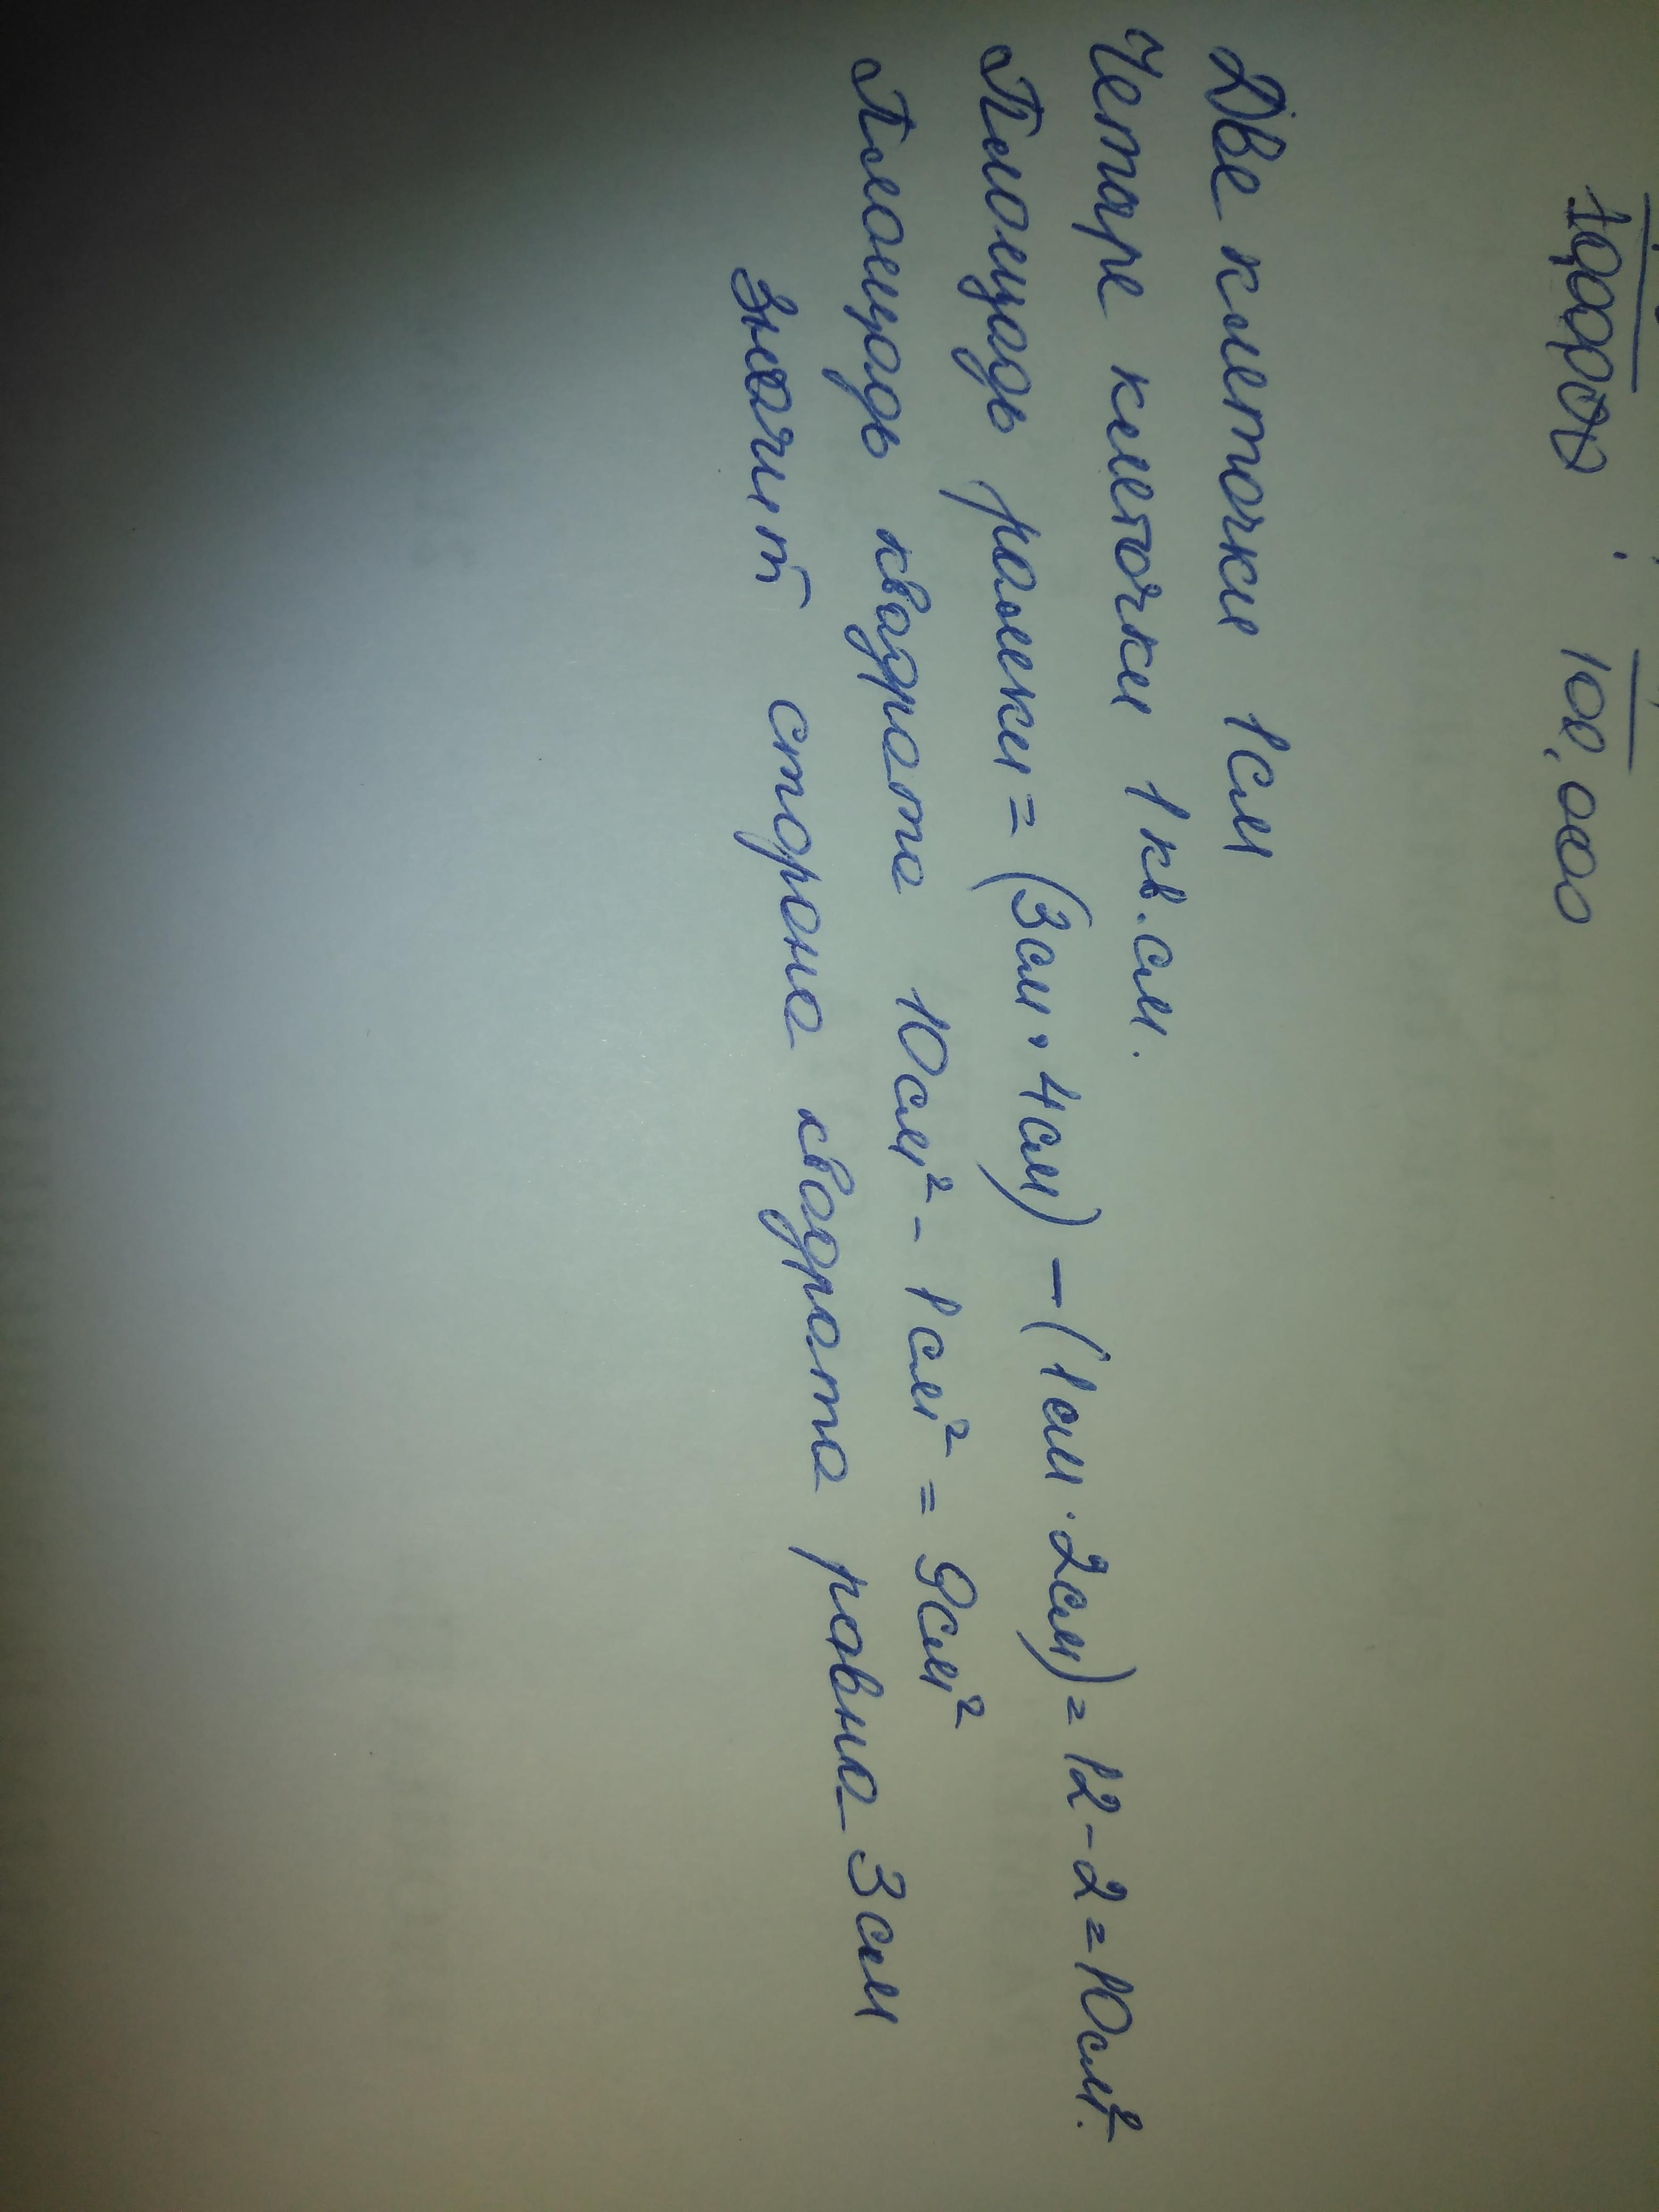 100000 100,000
Две клеточки 1см
Четыре клеточки 1 кв.см.
Площадь рамки = (3см · 4см) – (1см · 2см) = 12 – 2 = 10см².
Площадь квадрата 10см² – 1см² = 9см²
Значит сторона квадрата равна 3см